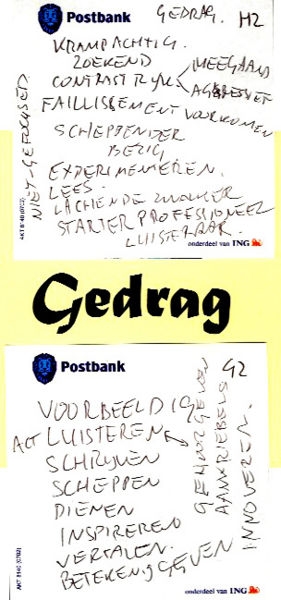 Postbank
GEDRAG. H2
KRAMPACHTIG.
ZOEKEND
CONTRASTRIJK MEEGAAND
AGRESSIEF
FAILLISSEMENT VOORKOMEN
SCHEPPENDER
BEZIG
EXPERIMENTEREN.
LEES.
LACHENDE ZWOEGER
STARTER PROFESSIONEEL
LUISTERAAR.
NIET-GEFOCUSED.
onderdeel van ING
Gedrag
Postbank
G2
VOORBEELDIG
ACT LUISTEREN
SCHRIJVEN
SCHEPPEN
DIENEN
INSPIREREN
VERTALEN.
BETEKENIS GEVEN
GEHOOR GEVEN
AAN KRIEBELS
INNOVEREN.
onderdeel van ING